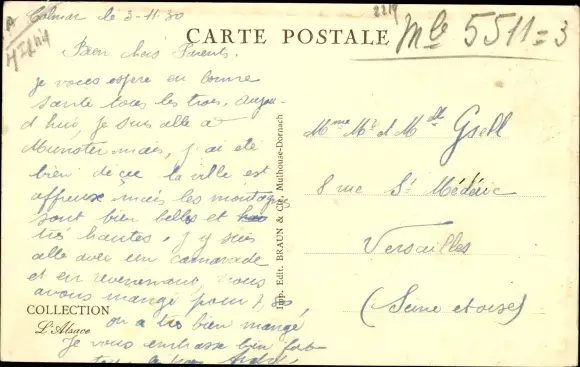 Colmar le 3-11.30
Bien chers Parents.
je vous espère en bonne
santé tous les trois. aujou-
d hui, je suis allé a
Munster mais, j'ai été
bien déçue la ville est
affreuse mais les montagnes
sont bien belles et
très hautes. j y suis
allé avec un camarade
et en revenant, nous
avons mangé pour 7,50
on a très bien mangé
Je vous embrasse bien
CARTE POSTALE
2219
Mlle 5511=3
Mme Mr et Mlle Gsell
8 rue St Médéric
Versailles
(Seine et oise)
Imp. Edit. BRAUN & Cie, Mulhouse-Dornach
COLLECTION
L'Alsace